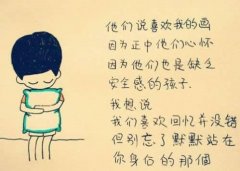 他们说喜欢我的画
因为正中他们心怀
因为他们也是缺乏
安全感的孩子.
我想说
我们喜欢回忆并没错
但别忘了默默站在
你身后的那個